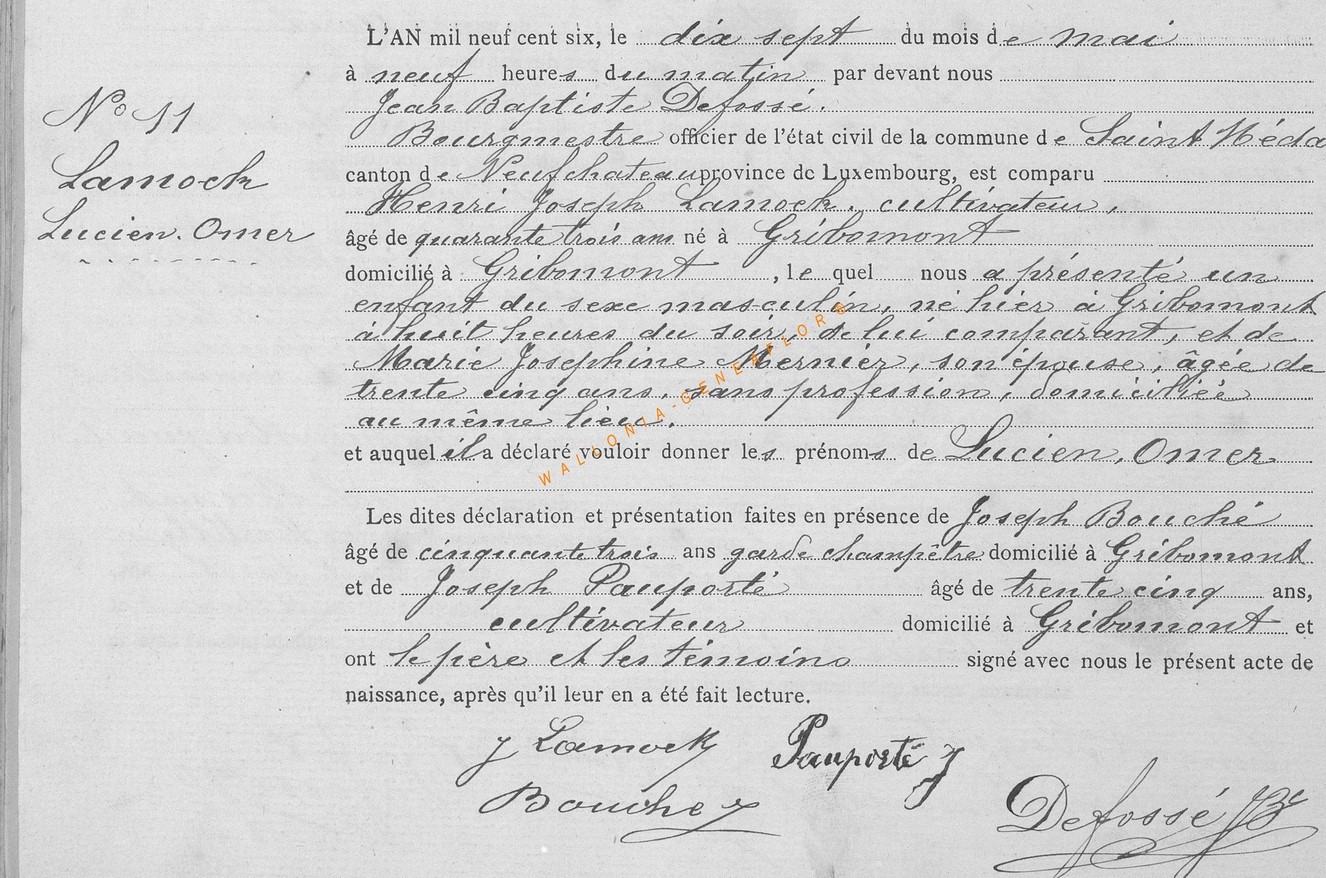 L'AN mil neuf cent six, le dix sept du mois de mai
à neuf heures du matin par devant nous
Jean Baptiste Defossé.
Bourgmestre officier de l'état civil de la commune de Saint Méda
canton de Neufchateau province de Luxembourg, est comparu
Henri Joseph Lamock, cultivateur,
âgé de quarante trois ans né à Gribomont
domicilié à Gribomont, lequel nous a présenté un
enfant du sexe masculin, né hier à Gribomont
à huit heures du soir, de lui comparant, et de
Marie Josephine Mernier, son épouse, âgée de
trente cinq ans, sans profession, domiciliée
au même lieu.
et auquel il a déclaré vouloir donner les prénoms de Lucien, Omer
Les dites déclaration et présentation faites en présence de Joseph Bouché
âgé de cinquante trois ans garde champêtre domicilié à Gribomont
et de Joseph Pauporté âgé de trente cinq ans,
cultivateur domicilié à Gribomont et
ont le père et les témoins signé avec nous le présent acte de
naissance, après qu'il leur en a été fait lecture.
N° 11
Lamock
Lucien. Omer
J Lamock
Pauporté J
Bouche J
Defossé JBte
WALLONIA-GENEAFLOR ©